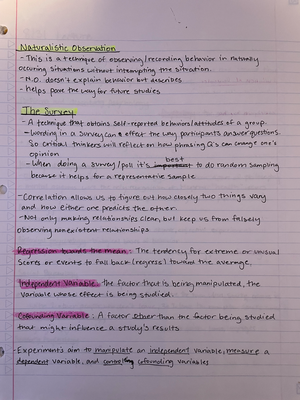 Naturalistic Observation
- This is a technique of observing/recording behavior in naturally
occuring situations without interrupting the situation.
- N.O. doesn't explain behavior but describes
- helps pave the way for future studies
The Survey
- A technique that obtains self-reported behaviors/attitudes of a group.
- Wording in a survey can effect the way participants answer questions.
So critical thinkers will reflect on how phrasing Q's can change one's
opinion
- When doing a survey/poll it's best to do random sampling
because it helps for a representative sample
- Correlation allows us to figure out how closely two things vary
and how either one predicts the other.
- Not only making relationships clear, but keep us from falsely
observing nonexistent relationships
Regression towards the mean: The tendency for extreme or unusual
scores or events to fall back (regress) toward the average.
Independent Variable: the factor that is being manipulated, the
variable whose effect is being studied.
Cofounding Variable: A factor other than the factor being studied
that might influence a study's results
- Experiments aim to manipulate an independent variable, measure a
dependent variable, and controlling cofounding variables